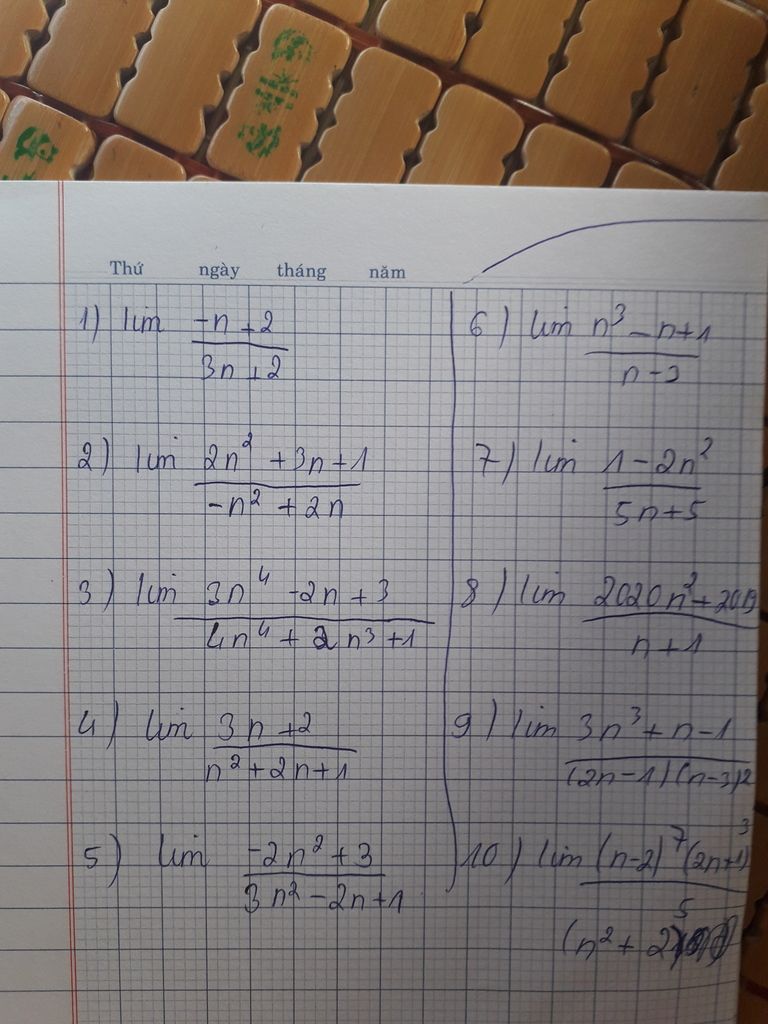 Thứ ngày tháng năm
1) lim
-n + 2
3n + 2
2) lim
2n² + 3n + 1
-n² + 2n
3) lim
3n⁴ - 2n + 3
4n⁴ + 2n³ + 1
4) lim
3n + 2
n² + 2n + 1
5) lim
-2n² + 3
3n² - 2n + 1
6) lim
n³ - n + 1
n -
7) lim
1 - 2n²
5n + 5
8) lim
2020n² +
n + 1
9) lim
3n³ + n - 1
(2n - 1)(n - 3)²
10) lim
(n-2)⁷(2n+1)³
(n² + 2)⁵